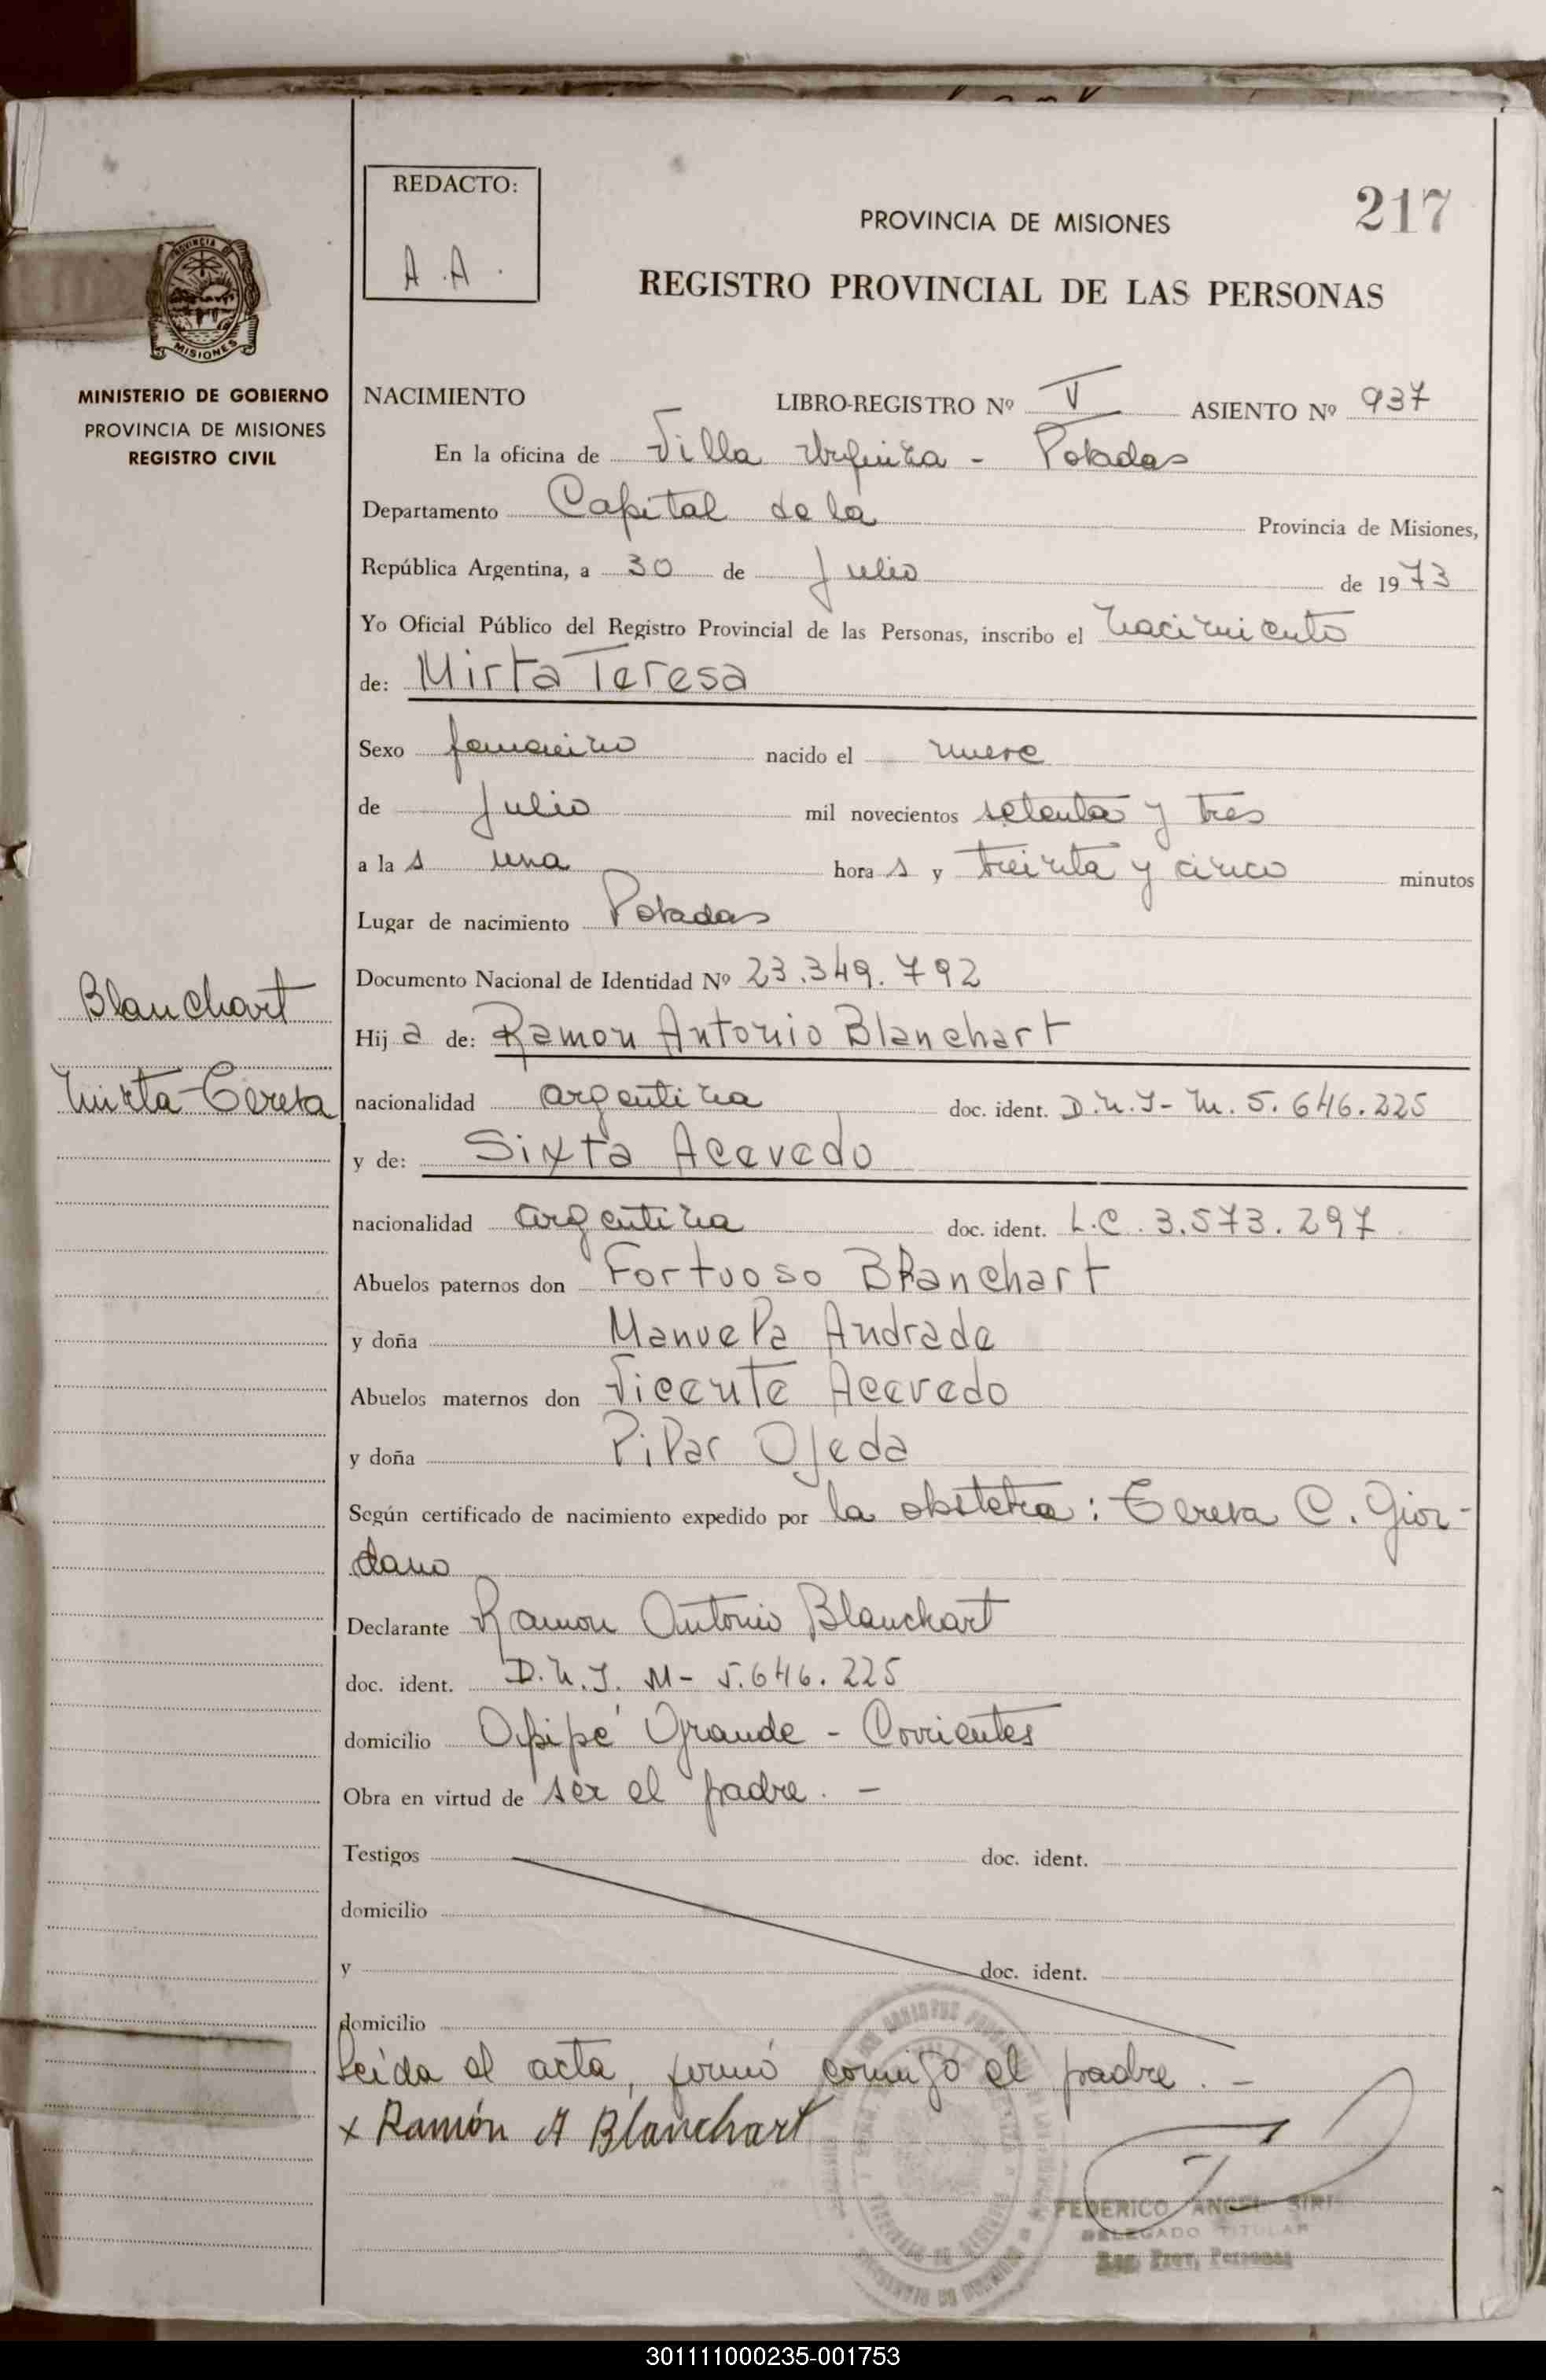 REDACTO:
A.A.
217
PROVINCIA DE MISIONES
REGISTRO PROVINCIAL DE LAS PERSONAS
PROVINCIA DE
MISIONES
MINISTERIO DE GOBIERNO
PROVINCIA DE MISIONES
REGISTRO CIVIL
NACIMIENTO LIBRO-REGISTRO Nº V ASIENTO Nº 937
En la oficina de Villa Urquiza - Posadas
Departamento Capital de la Provincia de Misiones,
República Argentina, a 30 de Julio de 1973
Yo Oficial Público del Registro Provincial de las Personas, inscribo el nacimiento
de: Mirta Teresa
Sexo femenino nacido el nueve
de Julio mil novecientos setenta y tres
a la s una hora s y treinta y cinco minutos
Lugar de nacimiento Posadas
Documento Nacional de Identidad Nº 23.349.792
Blanchart
Mirta Teresa
Hij a de: Ramon Antonio Blanchart
nacionalidad argentina doc. ident. D.N.I- M. 5.646.225
y de: Sixta Acevedo
nacionalidad argentina doc. ident. L.C. 3.573.297
Abuelos paternos don Fortuoso Blanchart
y doña Manuela Andrade
Abuelos maternos don Vicente Acevedo
y doña Pilar Ojeda
Según certificado de nacimiento expedido por la obstetra: Teresa C. Gior-
dano
Declarante Ramon Antonio Blanchart
doc. ident. D.N.I. M- 5.646.225
domicilio Apipé Grande - Corrientes
Obra en virtud de ser el padre. -
Testigos doc. ident.
domicilio
y doc. ident.
domicilio
Leída el acta, firmó conmigo el padre. -
x Ramón A Blanchart
FEDERICO ANGEL SIRI
DELEGADO TITULAR
Reg. Prov. Personas
301111000235-001753